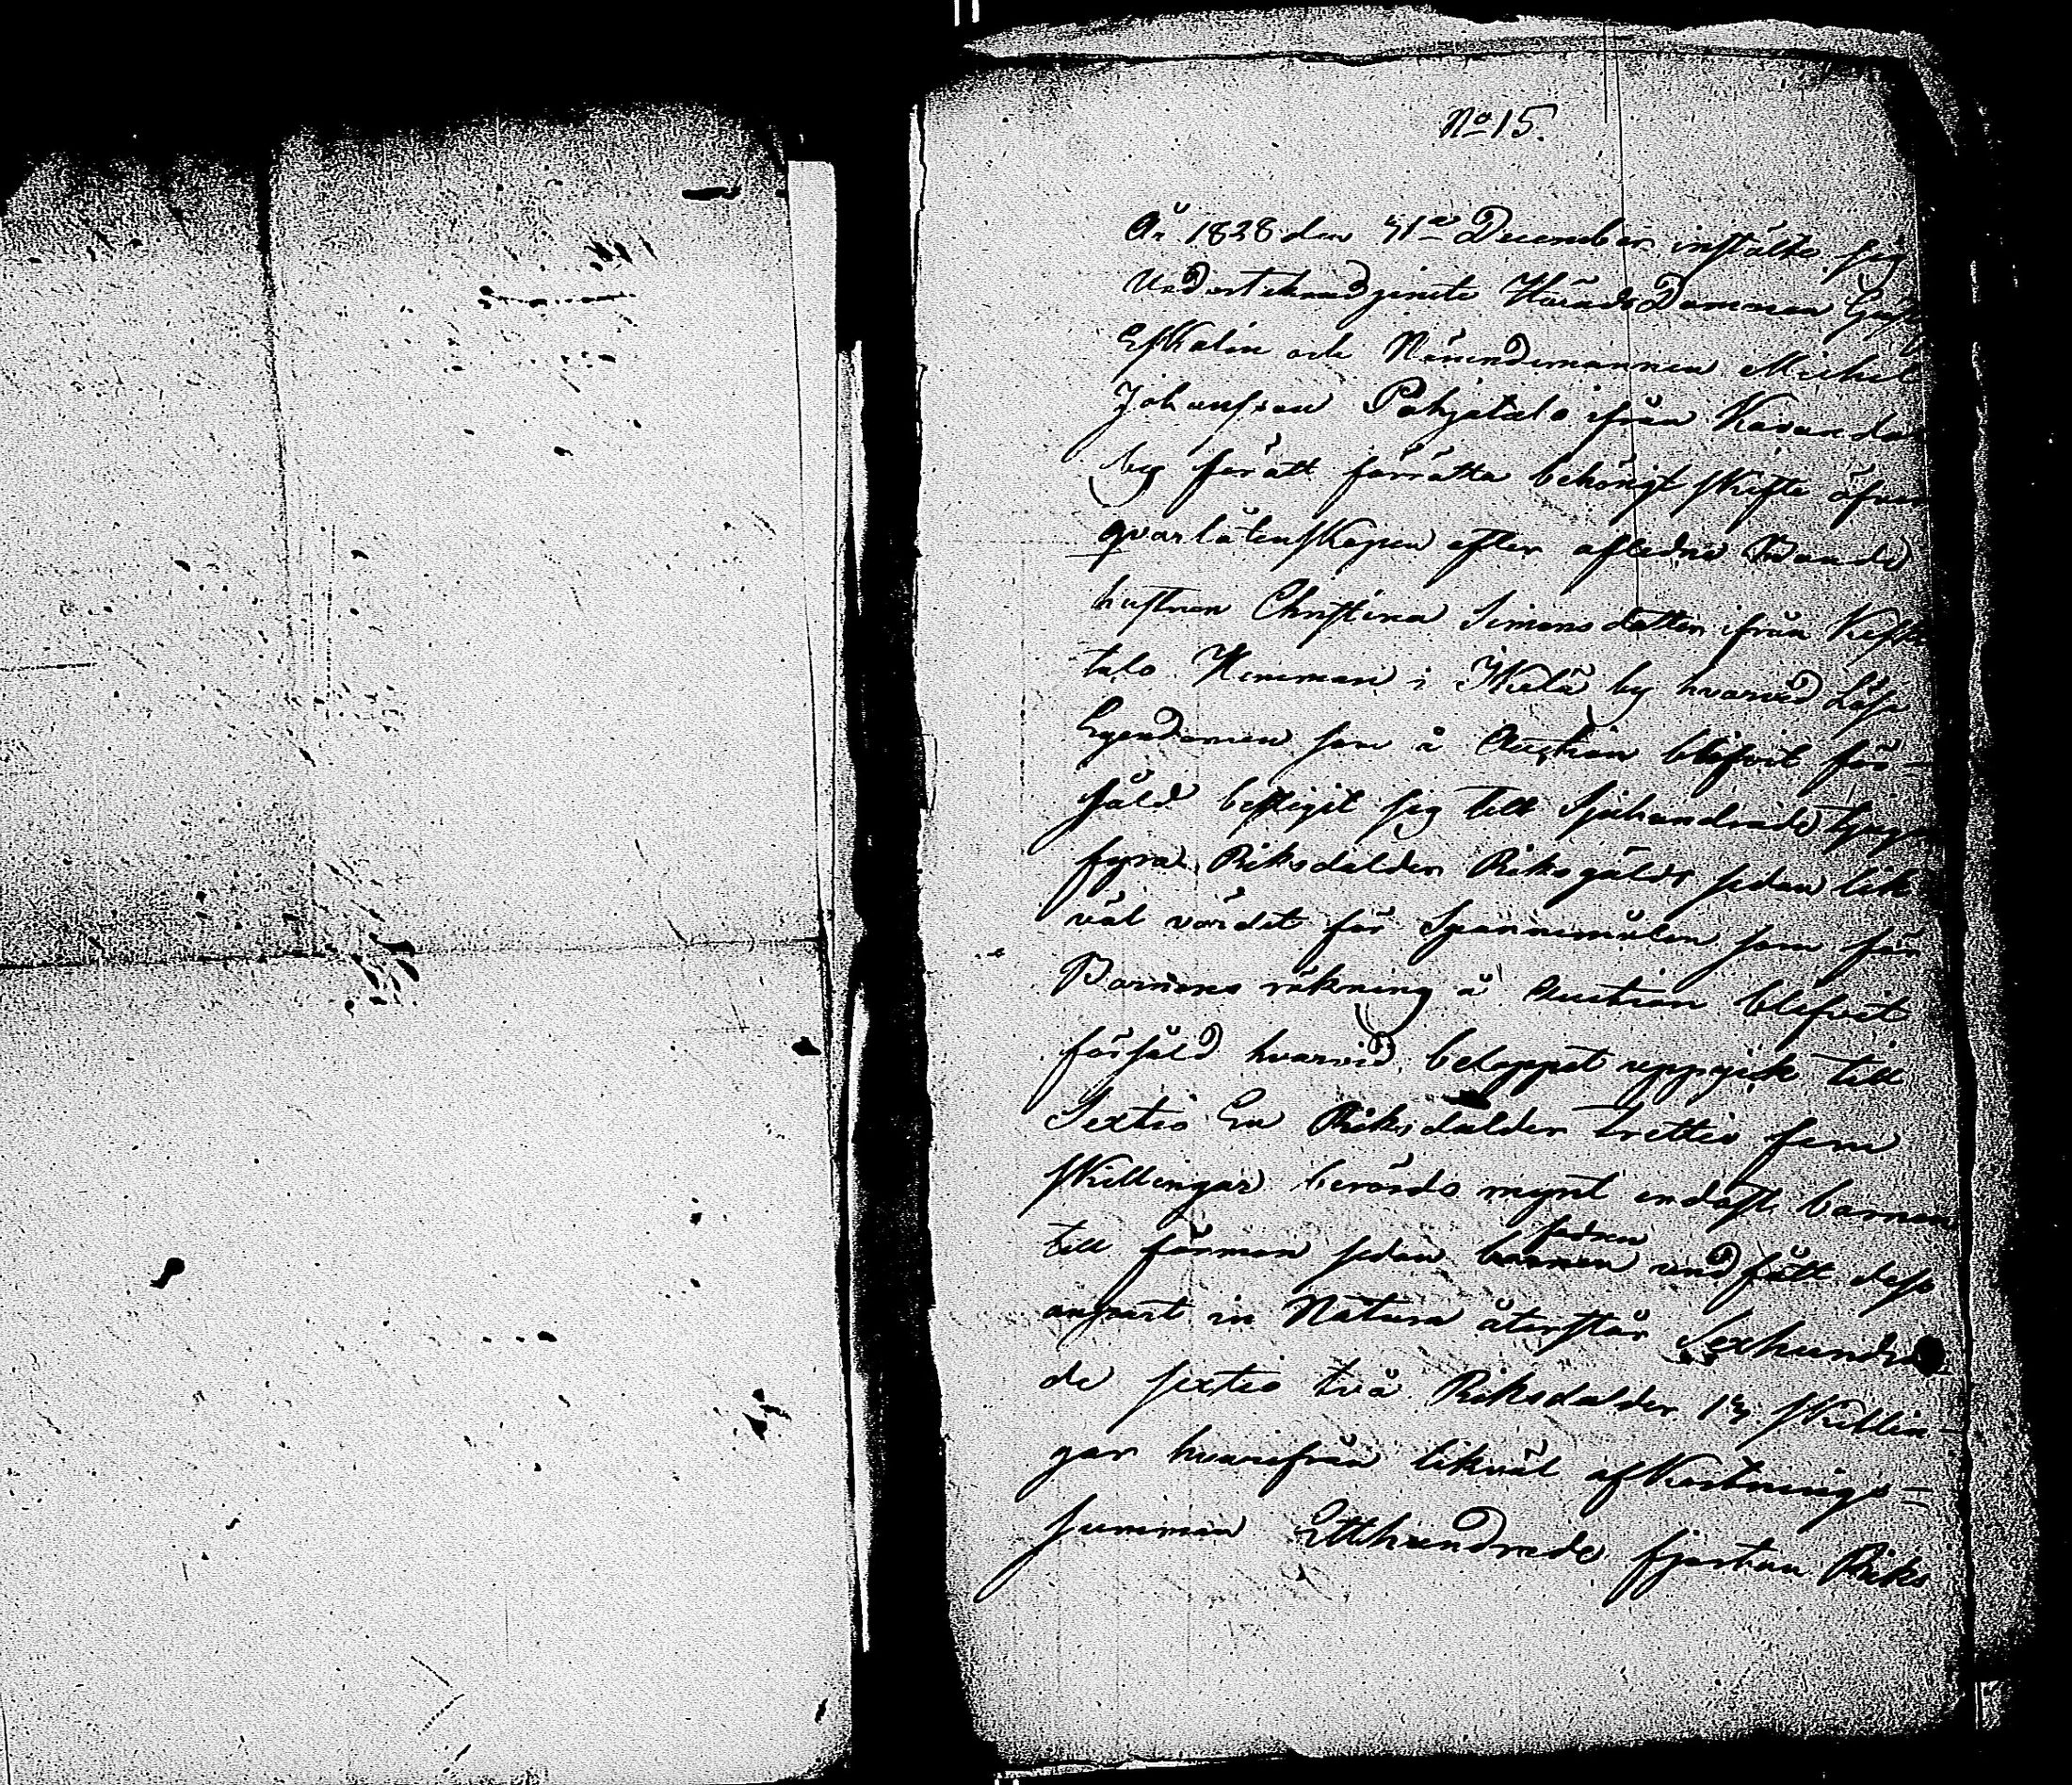 No 15.
År 1828 den 31e December instälte sig
Undertecknad jemte HäradsDommaren
Eskolin och Nämndemannen Michel
Johansson Pohjatalo ifrån
by för att förrätta behörigt skifte öfver
qvarlåtenskapen efter aflidne Bonde
hustrun Christina Simonsdotter ifrån Keski
talo Hemman i by hvarvid Lösa
Egendomen som å Auction blifvit för-
såld bestigit sig till Sjuhundrade tjugu
fyra Riksdalder Riksgälds sedan lik
väl värdet för Spannemålen som för
Barnens räkning å Auction blefvit
försåld hvarvid beloppet uppgick till
Sextio En Riksdalder trettio fem
skillingar berörde mynt endast barnen
till förmon sedan barnen fadren und fått dess
anpart in Natura återstår Sexhundra
de sextio två Riksdalder 13 skillin
gar hvarifrån likväl afkortnings=
summan Etthundrade fjorton Riks